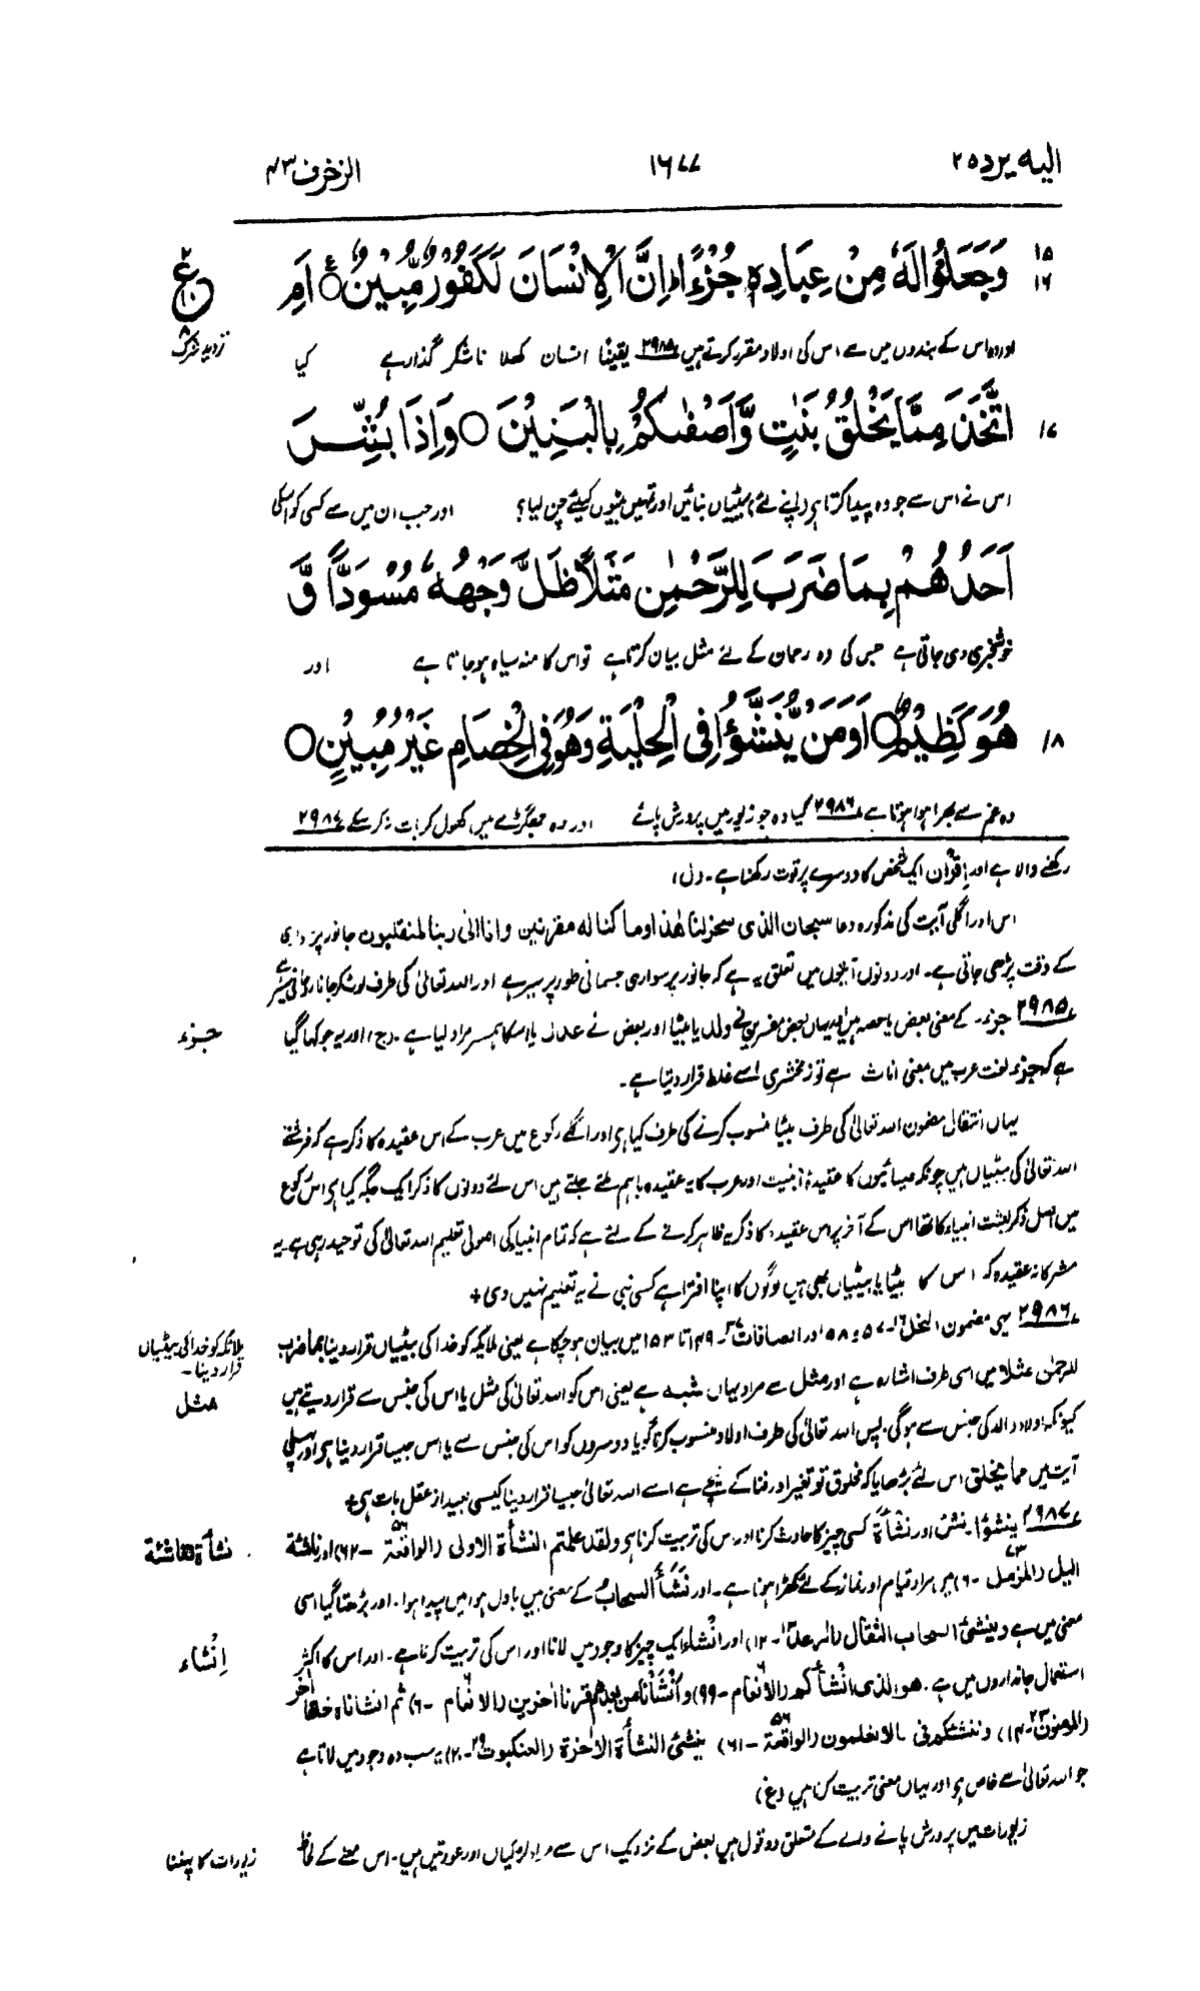 الیه یرد ۲۵
۱۶۷۷
الزخرف ۴۳
۱۵
۱۶
وَجَعَلُوْا لَهٗ مِنْ عِبَادِهٖ جُزْءًا ؕ اِنَّ الْاِنْسَانَ لَكَفُوْرٌ مُّبِيْنٌ ○ اَمِ
ع
تردید شرک
اور وہ اس کے بندوں میں سے اس کی اولاد مقرر کرتے ہیں ۲۹۸۵ یقیناً انسان کھلا ناشکر گذار ہے کیا
۱۷
اتَّخَذَ مِمَّا يَخْلُقُ بَنٰتٍ وَّاَصْفٰىكُمْ بِالْبَنِيْنَ ○ وَاِذَا بُشِّرَ
اس نے اس سے جو وہ پیدا کرتا ہے (اپنے لئے) بیٹیاں بنائیں اور تمہیں بیٹوں کیلئے چن لیا؟ اور جب ان میں سے کسی کو اسکی
اَحَدُهُمْ بِمَا ضَرَبَ لِلرَّحْمٰنِ مَثَلًا ظَلَّ وَجْهُهٗ مُسْوَدًّا وَّ
خوشخبری دی جاتی ہے جس کی وہ رحمان کے لئے مثل بیان کرتا ہے تو اس کا منہ سیاہ ہو جاتا ہے اور
۱۸
هُوَ كَظِيْمٌ ○ اَوَمَنْ يُّنَشَّؤُا فِى الْحِلْيَةِ وَهُوَ فِى الْخِصَامِ غَيْرُ مُبِيْنٍ ○
وہ غم سے بھرا ہوا ہوتا ہے ۲۹۸۶ کیا وہ جو زیور میں پرورش پائے اور وہ جھگڑے میں کھول کر بات نہ کر سکے ۲۹۸۷
رکھنے والا ہے اور اقران ایک شخص کا دوسرے پر قوت رکھنا ہے۔ (ل)
اس اور اگلی آیت کی مذکورہ دعا سبحان الذی سخر لنا ھذا وما کنا له مقرنین وانا الی ربنا لمنقلبون جانور پر سواری
کے وقت پڑھی جاتی ہے۔ اور دونوں آیتوں میں تعلق یہ ہے کہ جانور پر سواری جسمانی طور پر سیر ہے اور اللہ تعالیٰ کی طرف لوٹ کر جانا روحانی سیر ہے
جزء
۲۹۸۵ جزء کے معنی بعض یا حصہ ہیں اور یہاں بعض مفسرین نے ولد یا بیٹا اور بعض نے عدل یا اسکا ہمسر مراد لیا ہے۔ (ج) اور یہ جو کہا گیا
ہے کہ جزء لغت عرب میں معنی اناث ہے تو زمخشری اسے غلط قرار دیتا ہے۔
یہاں انتقال مضمون اللہ تعالیٰ کی طرف بیٹا منسوب کرنے کی طرف کیا ہے اور اگلے رکوع میں عرب کے اس عقیدہ کا ذکر ہے کہ فرشتے
اللہ تعالیٰ کی بیٹیاں ہیں چونکہ عیسائیوں کا عقیدۂ ابنیت اور عرب کا یہ عقیدہ باہم ملتے جلتے ہیں اس لئے دونوں کا ذکر ایک جگہ کیا ہے اس رکوع
میں اصل ذکر بعثت انبیاء کا تھا اس کے آخر پر اس عقیدہ کا ذکر یہ ظاہر کرنے کے لئے ہے کہ تمام انبیاء کی اصولی تعلیم اللہ تعالیٰ کی توحید رہی ہے۔ یہ
مشرکانہ عقیدہ کہ اس کا بیٹا یا بیٹیاں بھی ہیں لوگوں کا اپنا افترا ہے کسی نبی نے یہ تعلیم نہیں دی +
ملائکہ کو خدا کی بیٹیاں
قرار دینا۔
۲۹۸۶ یہی مضمون النحل ۱۶۔۵۷ و ۵۸ اور الصافات ۳۷۔۱۴۹ تا ۱۵۳ میں بیان ہو چکا ہے یعنی ملائکہ کو خدا کی بیٹیاں قرار دینا بما ضرب
مثل
للرحمٰن مثلا میں اسی طرف اشارہ ہے اور مثل سے مراد یہاں شبہ ہے یعنی اس کو اللہ تعالیٰ کی مثل یا اس کی جنس سے قرار دیتے ہیں
کیونکہ اولاد والد کی جنس سے ہوگی پس اللہ تعالیٰ کی طرف اولاد منسوب کرنا گویا دوسروں کو اس کی جنس سے یا اس جیسا قرار دینا ہے اور پہلی
آیت میں مما یخلق اس لئے بڑھایا کہ مخلوق تو تغیر اور فنا کے نیچے ہے اسے اللہ تعالیٰ جیسا قرار دینا کیسی بعید از عقل بات ہے +
نشأة ناشئة
۲۹۸۷ ینشؤا۔ نشئ اور نشأة کسی چیز کا حادث کرنا اور اس کی تربیت کرنا ہے ولقد علمتم النشأة الاولی (الواقعة ۵۶۔۶۲) اور ناشئة
الیل (المزمل ۷۳۔۶) میں مراد قیام اور نماز کے لئے کھڑا ہونا ہے۔ اور نشأ السحاب کے معنی ہیں بادل ہوا میں پیدا ہوا۔ اور بڑھتا گیا اسی
انشاء
معنی میں ہے وینشئ السحاب الثقال (الرعد ۱۳۔۱۲) اور انشاء ایک چیز کا وجود میں لانا اور اس کی تربیت کرنا ہے۔ اور اس کا اکثر
استعمال جانداروں میں ہے۔ ھو الذی انشأکم (الانعام ۶۔۹۹) و أنشأنا من بعدھم قرنا اٰخرین (الانعام ۶۔۶) ثم انشاناہ خلقا اٰخر
(المؤمنون ۲۳۔۱۴) و ننشئکم فی مالا تعلمون (الواقعة ۵۶۔۶۱) ینشئ النشأة الاٰخرة (العنکبوت ۲۹۔۲۰) یہ سب وہ وجود میں لاتا ہے
جو اللہ تعالیٰ سے خاص ہو اور یہاں معنی تربیت کرنا ہیں (غ)
زیورات کا پہننا
زیورات میں پرورش پانے والے کے متعلق دو قول ہیں بعض کے نزدیک اس سے مراد لڑکیاں اور عورتیں ہیں۔ اس معنے کے لحاظ